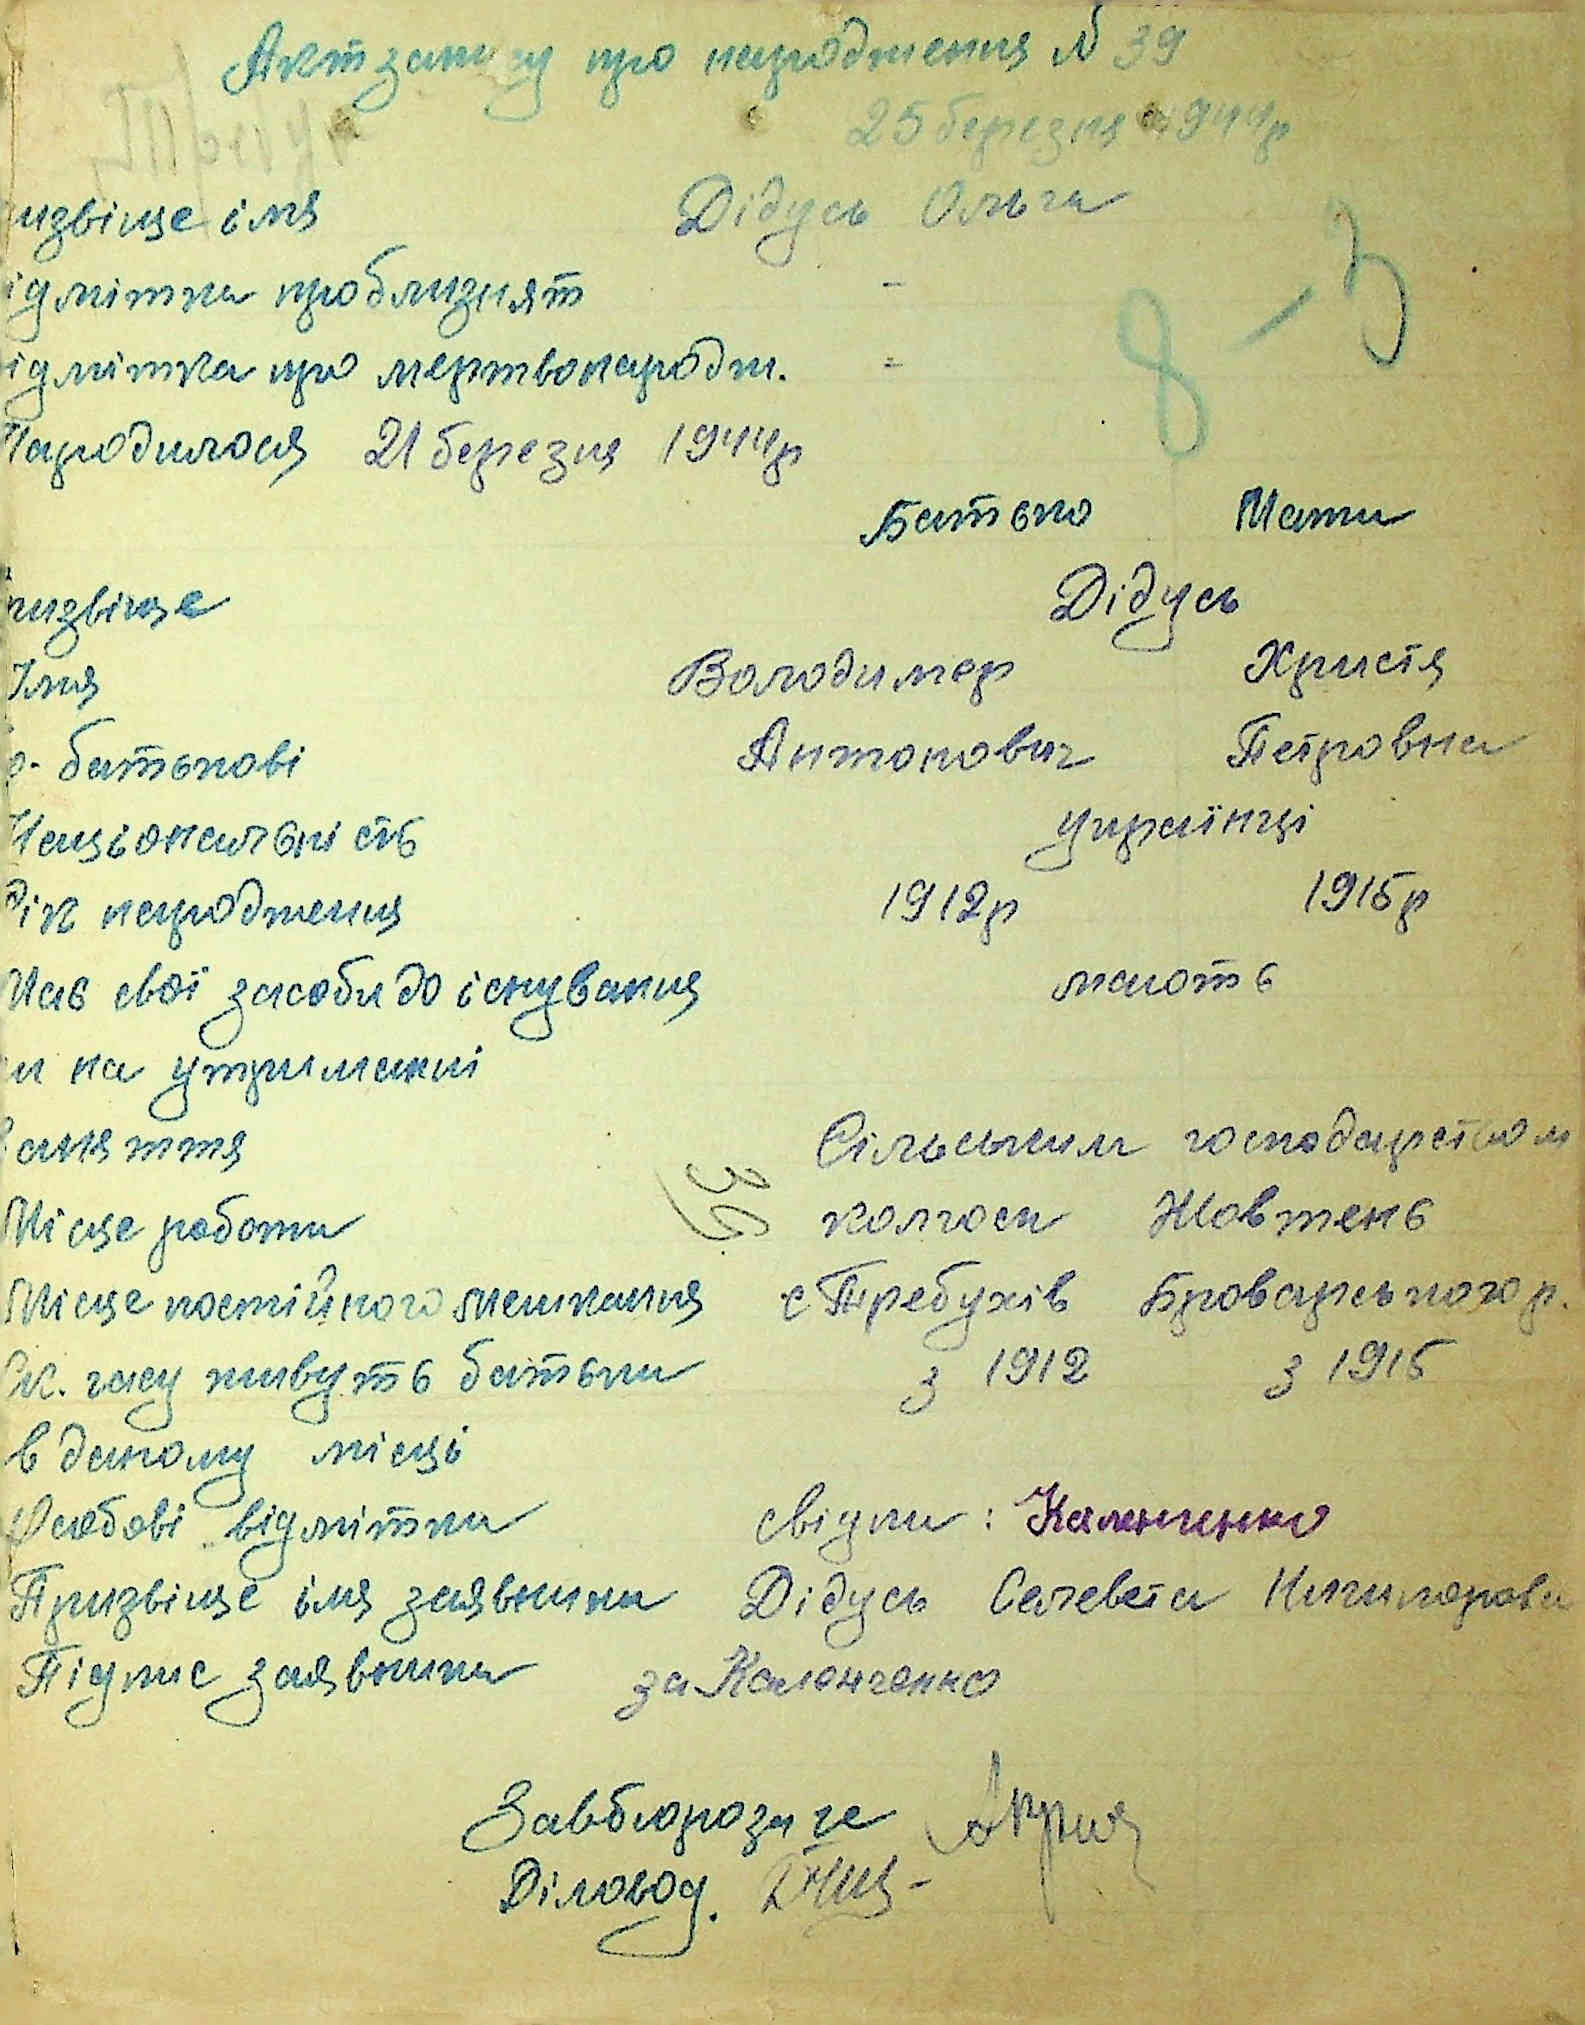 Акт запису про народження № 39
25 березня 1944р
извіще імя Дідусь Ольга
ідмітка проблизнят -
8-3
ідмітка про мертвонародж. -
Народилося 21 березня 1944р
Батько Мати
ризвіще Дідусь
Імя Володимер Христя
о-батькові Антонович Петровна
Національність українці
рік народження 1912р 1915р
Має свої засоби до існування мають
и на утриманні
Заняття Сільським господарством
39
Місце роботи колгосп Жовтень
Місце постійного мешкання с Требухів Броварського р.
Ск. часу живуть батьки з 1912 з 1915
в даному місці
Особові відмітки свідки:
Призвіще імя заявника Дідусь Селевета Никифорова
Підпис заявника за Каленченко
Завбюрозагс
Діловод.